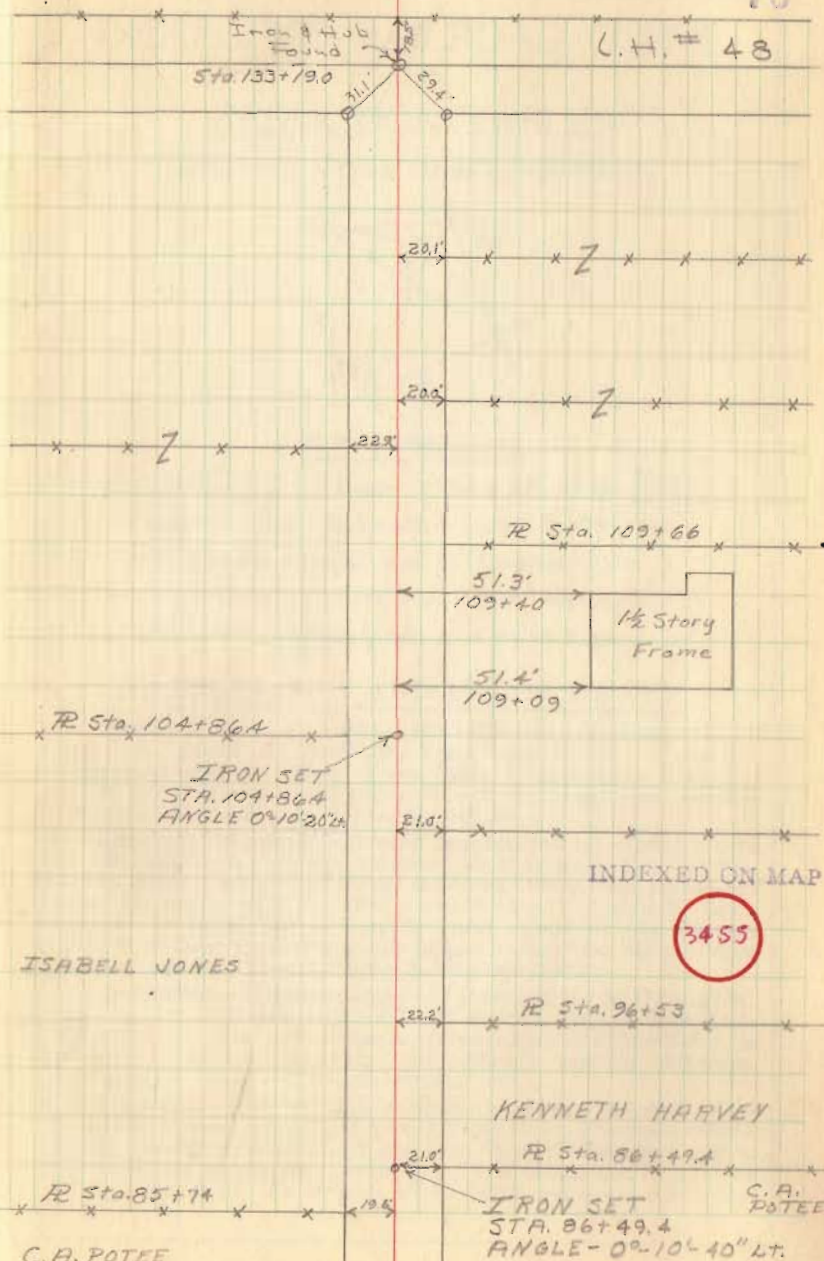 Iron & Hub
found
18.5'
C.H.# 48
Sta. 133+19.0
31.1'
29.4'
20.1'
Z
20.0'
Z
Z
22.9'
PL Sta. 109+66
51.3'
109+40
1½ Story
Frame
51.4'
109+09
PL Sta. 104+86.4
IRON SET
STA. 104+86.4
ANGLE 0°-10'-20" Lt.
21.0'
INDEXED ON MAP
3455
ISABELL JONES
22.2'
PL Sta. 96+53
KENNETH HARVEY
21.0'
PL Sta. 86+49.4
C.A.
POTEE
PL Sta. 85+74
19.5'
IRON SET
STA. 86+49.4
ANGLE - 0°-10'-40" LT.
C.A. POTEE